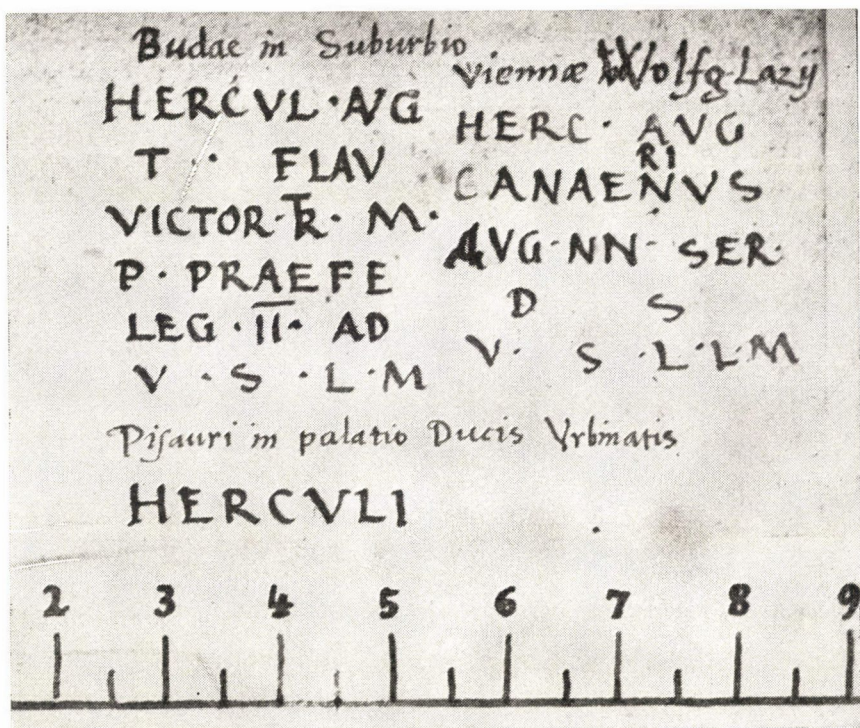 Budae in Suburbio
HERCVL · AVG
T · · FLAV
VICTOR · TR · M ·
P · PRAEFE
LEG · II · AD
V · S · L · M
Viennæ Wolfg. Lazij
HERC · AVG
RI
CANAENVS
AVG · NN · SER ·
D S
V · S · L · L · M
Pisauri in palatio Ducis Vrbinatis
HERCVLI
2 3 4 5 6 7 8 9